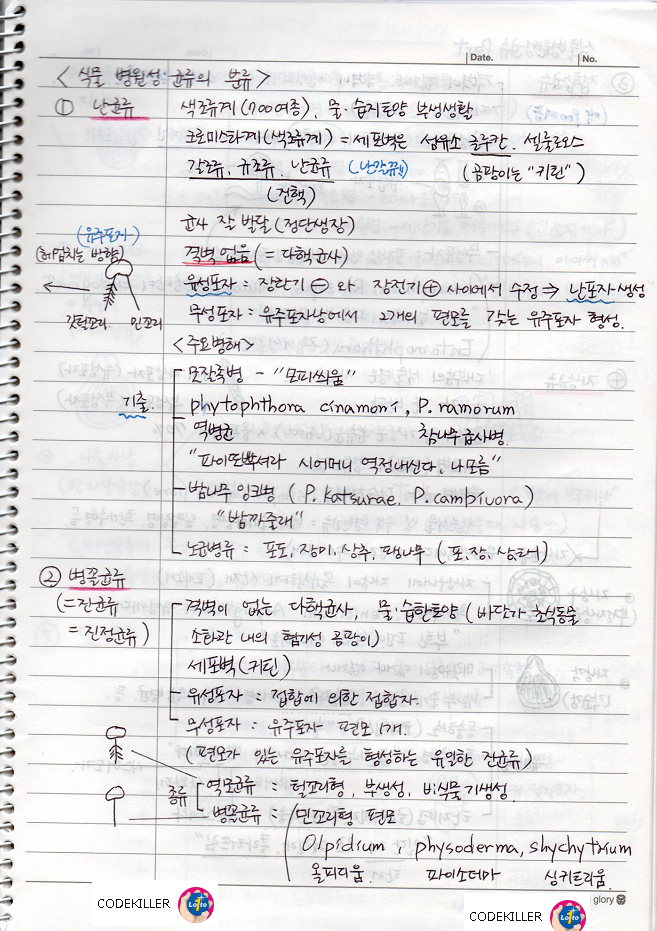 Date. No.
< 식물 병원성 균류의 분류 >
① 난균류 색조류계(700여종), 물·습지토양 부생생활
크로미스타계(색조류계) = 세포벽은 섬유소 글루칸. 셀룰로오스
갈조류, 규조류, 난균류 (난갈규) (곰팡이는 "키틴")
(건핵)
균사 잘 발달 (정단생장)
(유주포자) 격벽 없음 (= 다핵균사)
(헤엄치는 방향) 유성포자 = 장란기 ⊖ 와 장정기 ⊕ 사이에서 수정 ⇒ 난포자 생성
깃털꼬리 민꼬리 무성포자 = 유주포자낭에서 2개의 편모를 갖는 유주포자 형성.
<주요병해>
모잘록병 - "모피씌움"
기출. phytophthora cinamoni, P. ramorum
역병균 참나무급사병.
"파이또빡셔라 시어머니 역정내신다, 나모름"
밤나무 잉크병 (P. katsurae. P. cambivora)
"밤까줄래"
노균병류 - 포도, 장미, 상추, 팽나무 (포.장.상.태)
② 병꼴균류
(=진균류 격벽이 없는 다핵균사, 물·습한토양 (바닷가 초식동물
= 진정균류) 소화관 내의 혐기성 곰팡이)
세포벽 (키틴)
유성포자 = 접합에 의한 접합자.
무성포자 = 유주포자 편모 1개.
(편모가 있는 유주포자를 형성하는 유일한 진균류)
종류 역모균류 = 털꼬리형, 부생성, 비식물기생성.
병꼴균류 = 민꼬리형 편모
Olpidium, physoderma, shychytrium
올피디움. 파이소더마 싱키트리움.
glory
CODEKILLER Lotto
CODEKILLER Lotto